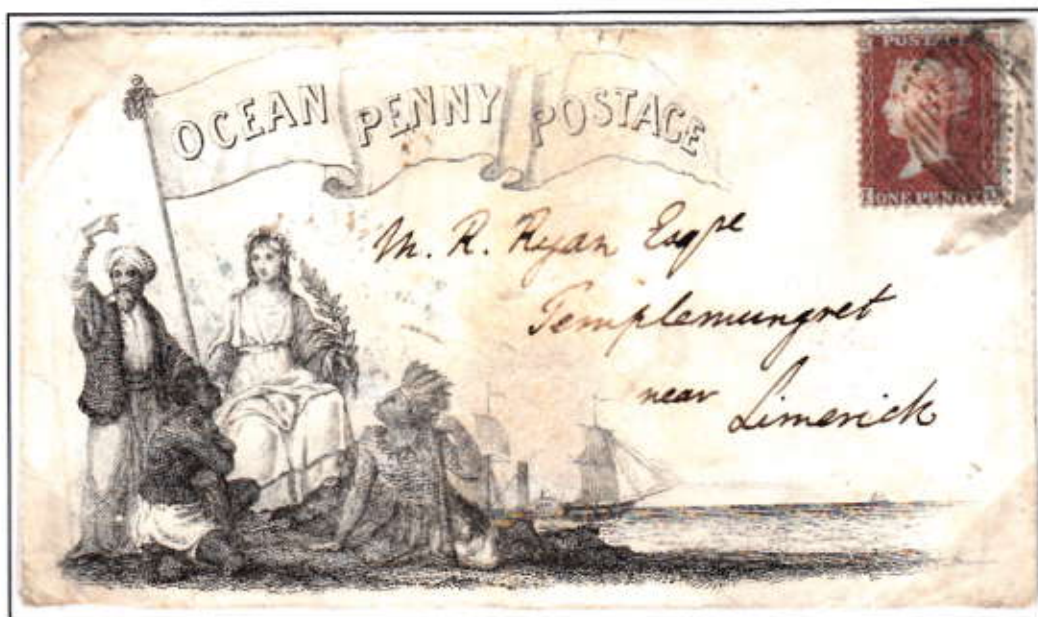 OCEAN PENNY POSTAGE
POSTAGE
ONE PENNY
M. R. Ryan Esqre
Templemungret
near Limerick